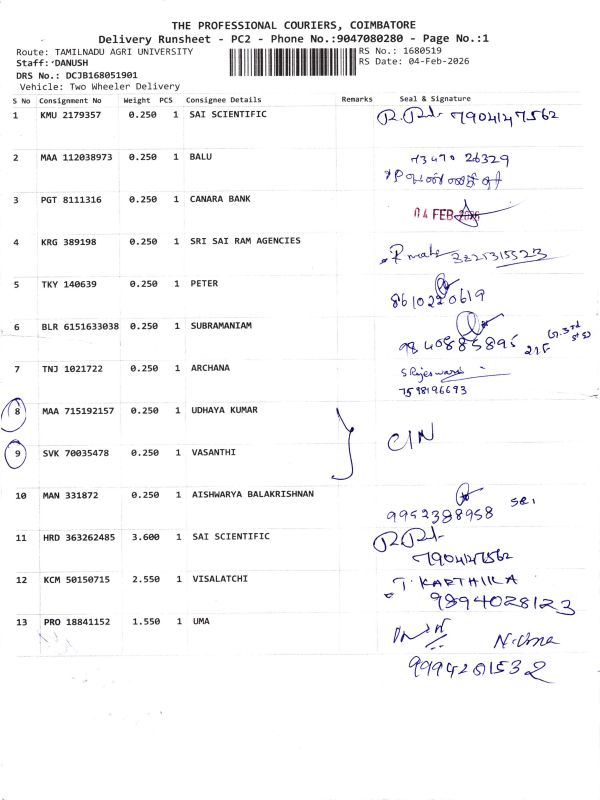 THE PROFESSIONAL COURIERS, COIMBATORE
Delivery Runsheet - PC2 - Phone No.:9047080280 - Page No.:1
Route: TAMILNADU AGRI UNIVERSITY RS No.: 1680519
Staff: DANUSH RS Date: 04-Feb-2026
DRS No.: DCJB168051901
Vehicle: Two Wheeler Delivery
S No Consignment No Weight PCS Consignee Details Remarks Seal & Signature
1 KMU 2179357 0.250 1 SAI SCIENTIFIC 7904147562
2 MAA 112038973 0.250 1 BALU 73470 26329
3 PGT 8111316 0.250 1 CANARA BANK 04 FEB 2026
4 KRG 389198 0.250 1 SRI SAI RAM AGENCIES
5 TKY 140639 0.250 1 PETER 8610220619
6 BLR 6151633038 0.250 1 SUBRAMANIAM 9840885895
7 TNJ 1021722 0.250 1 ARCHANA S Rajeswari
7598196693
8 MAA 715192157 0.250 1 UDHAYA KUMAR
9 SVK 70035478 0.250 1 VASANTHI CIN
10 MAN 331872 0.250 1 AISHWARYA BALAKRISHNAN 9952388958
11 HRD 363262485 3.600 1 SAI SCIENTIFIC
7904147562
12 KCM 50150715 2.550 1 VISALATCHI T. KARTHIKA
9894028123
13 PRO 18841152 1.550 1 UMA N. Uma
9994201532